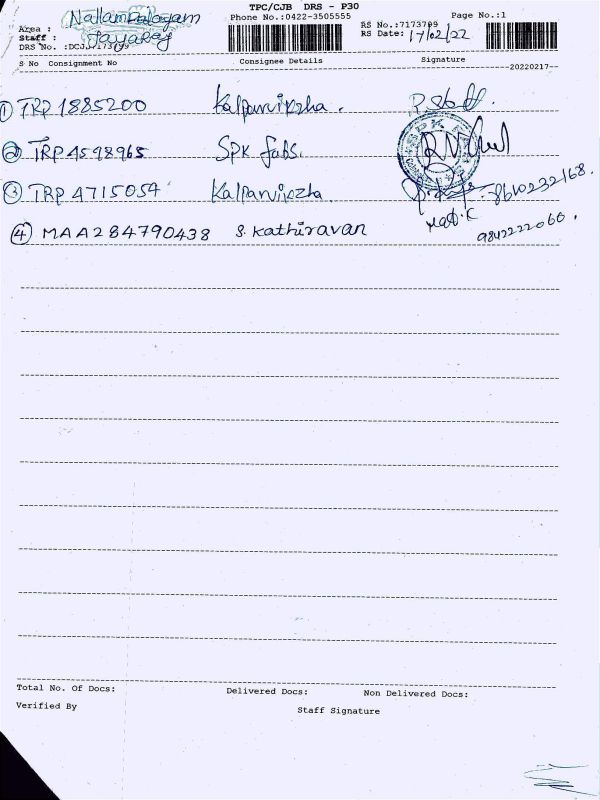 TPC/CJB DRS - P30
Phone No.:0422-3505555
Page No.:1
Area : Nallampalayam
Staff : Jayaraj
RS No.:7173799
RS Date: 17/02/22
DRS No. :DCJJ7173799
S No Consignment No Consignee Details Signature
20220217
① TRP 1885200 Kalpavikzha.
② TRP 4598965 SPK fabs.
③ TRP 4715054 Kalpavikzha 8610232168.
④ MAA284790438 S. Kathiravan 9842222060.
Total No. Of Docs: Delivered Docs: Non Delivered Docs:
Verified By Staff Signature